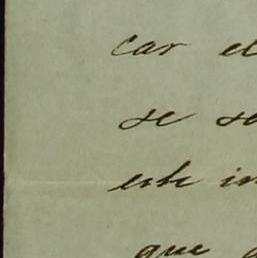 car el
se se
este in
que